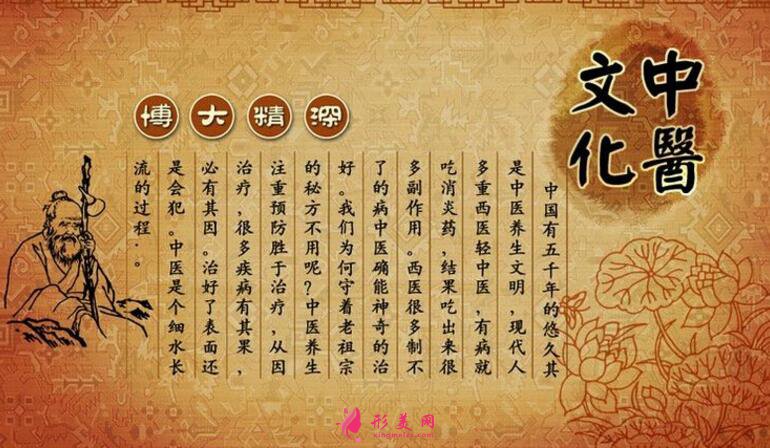 中醫
文化
博大精深
中国有五千年的悠久其
是中医养生文明,现代人
多重西医轻中医,有病就
吃消炎药,结果吃出来很
多副作用。西医很多制不
了的病中医确能神奇的治
好。我们为何守着老祖宗
的秘方不用呢?中医养生
注重预防胜于治疗,从因
治疗,很多疾病有其果,
必有其因。治好了表面还
是会犯。中医是个细水长
流的过程·。
形美网